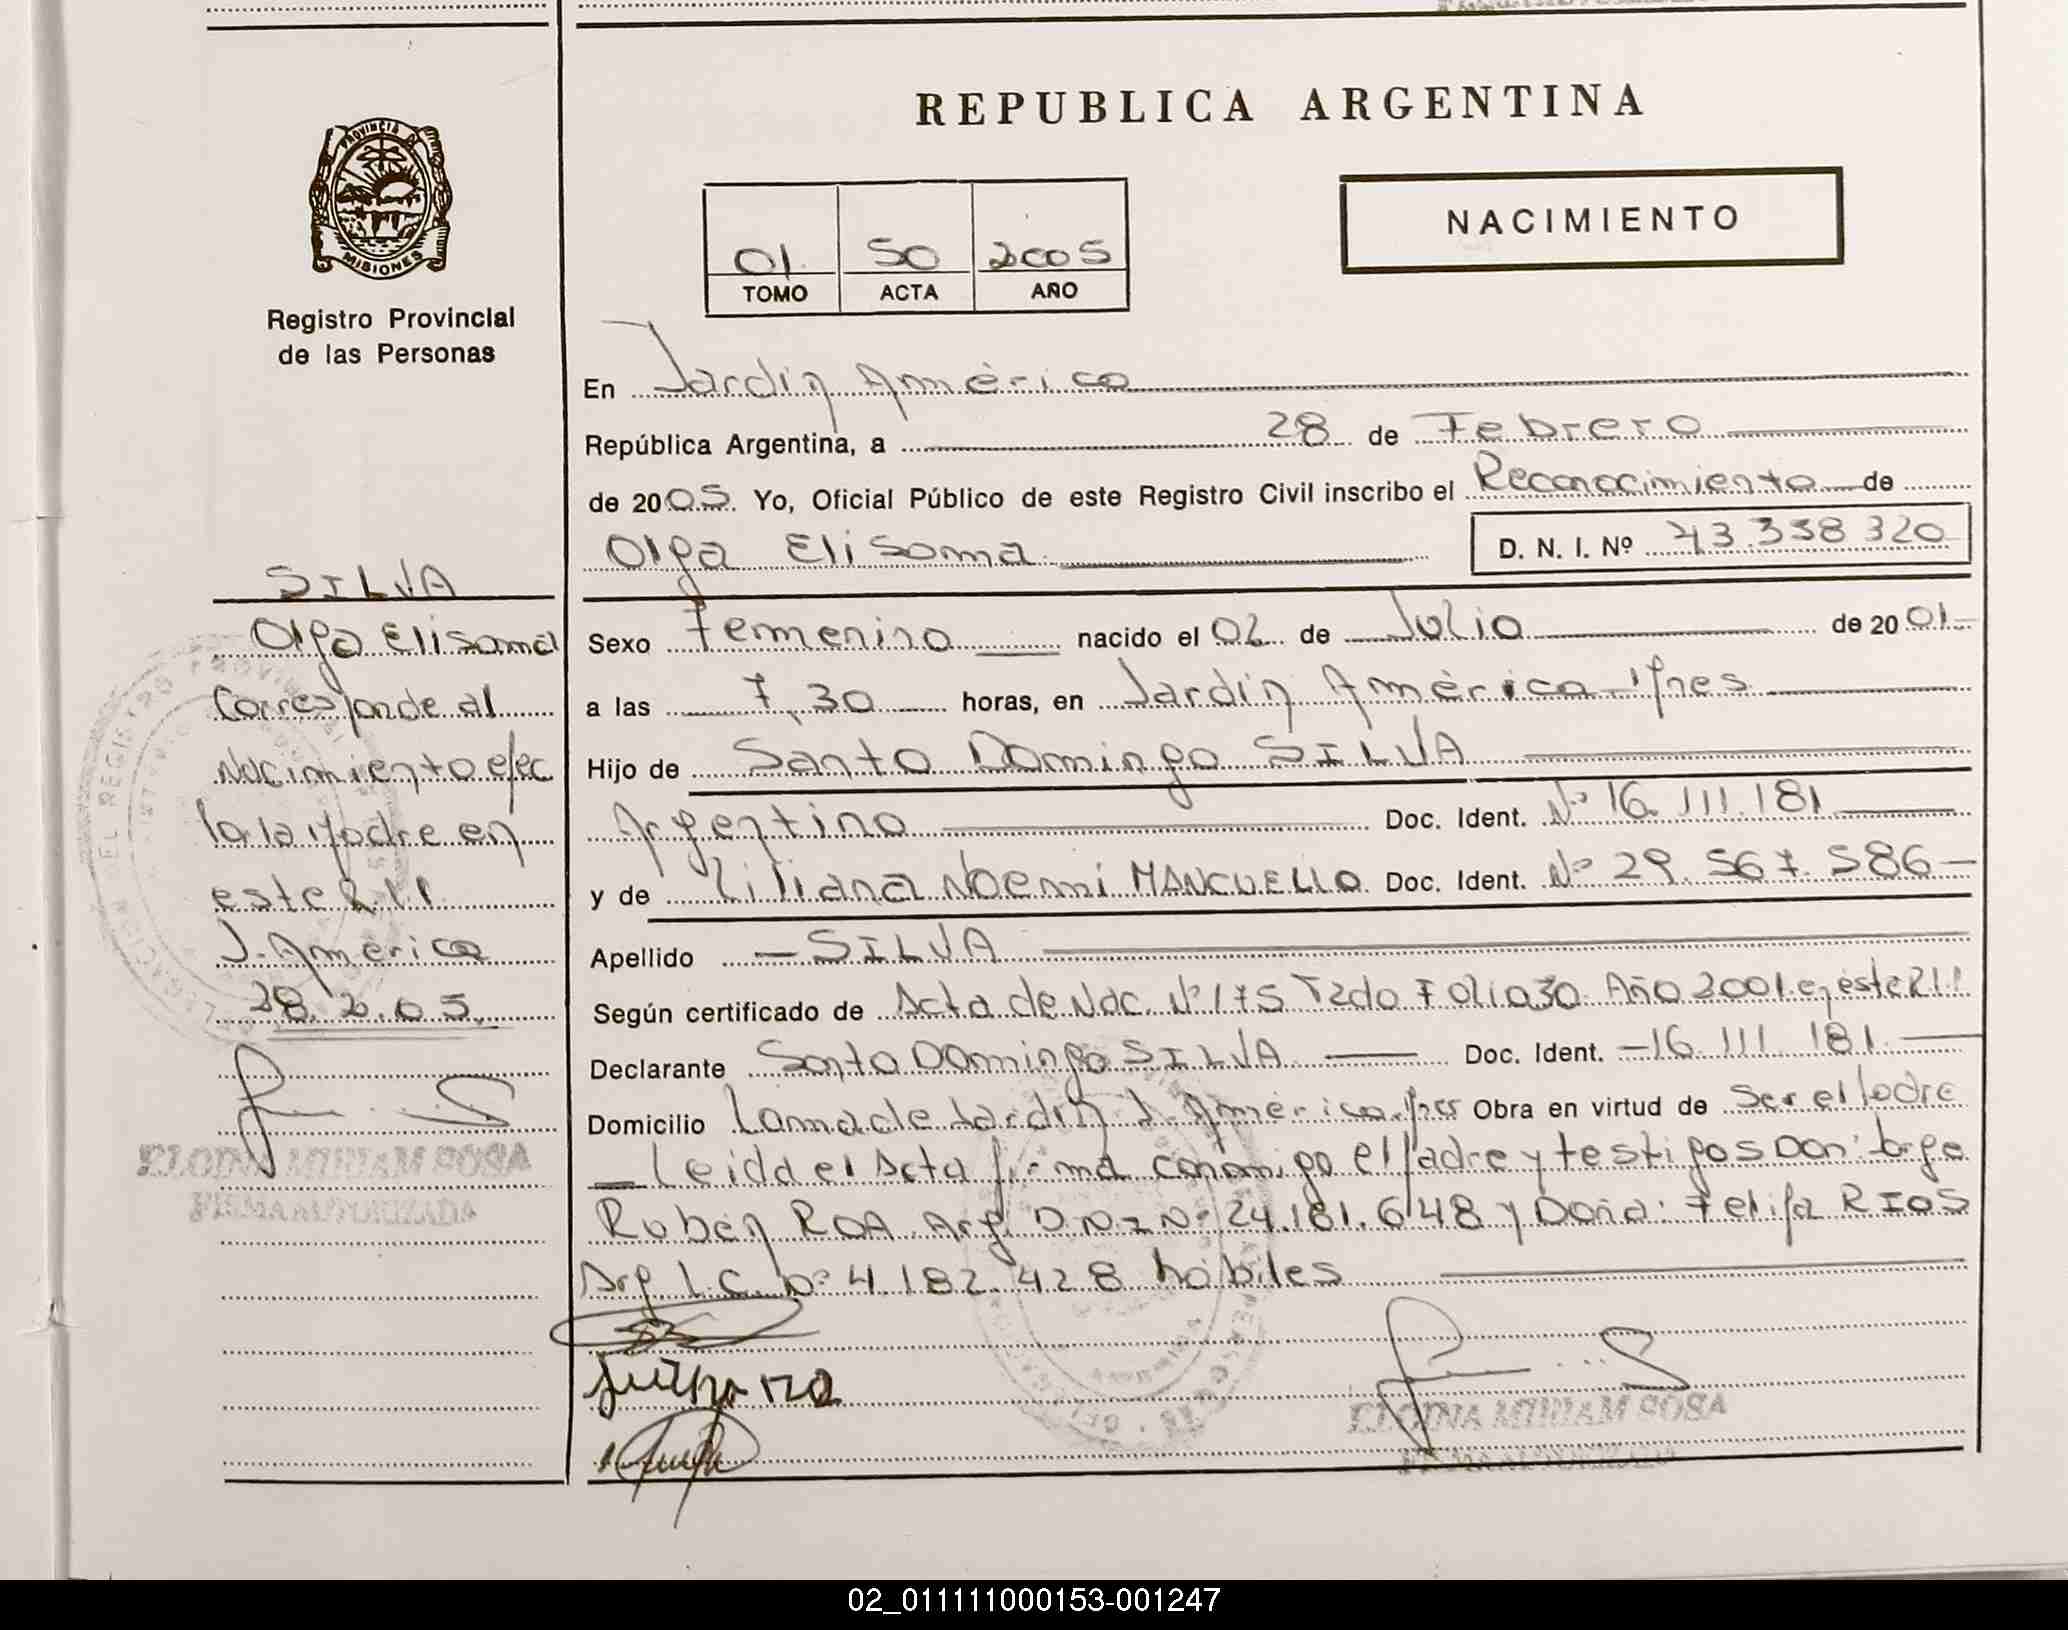 PROVINCIA DE
MISIONES
Registro Provincial
de las Personas
SILVA
Olga Elisama
Corresponde al
Nacimiento efec
la la Madre en
este R.P.P
J. América
28.2.05.
ELODINA MIRIAM SOSA
FIRMA AUTORIZADA
REPUBLICA ARGENTINA
NACIMIENTO
01 50 2005
TOMO ACTA AÑO
En Jardín América
República Argentina, a 28 de Febrero
de 2005. Yo, Oficial Público de este Registro Civil inscribo el Reconocimiento de
Olga Elisama D. N. I. Nº 43.338.320
Sexo Femenino nacido el 02 de Julio de 2001
a las 7,30 horas, en Jardín América Mnes
Hijo de Santo Domingo SILVA
Argentino Doc. Ident. Nº 16.111.181
y de Liliana Noemi MANCUELLO Doc. Ident. Nº 29.567.586
Apellido SILVA
Según certificado de Acta de Nac. Nº 175 T2do Folio 30 Año 2001 en este R.P.P
Declarante Santo Domingo SILVA Doc. Ident. 16.111.181
Domicilio Loma de Jardín J. América Mnes Obra en virtud de Ser el Padre
Leida el Acta firma conmigo el padre y testigos Don: Jorge
Ruben ROA Arg D.N.I Nº 24.181.648 y Doña: Felipa RIOS
Arg L.C. Nº 4.182.428 hábiles
ELODINA MIRIAM SOSA
FIRMA AUTORIZADA
02_011111000153-001247